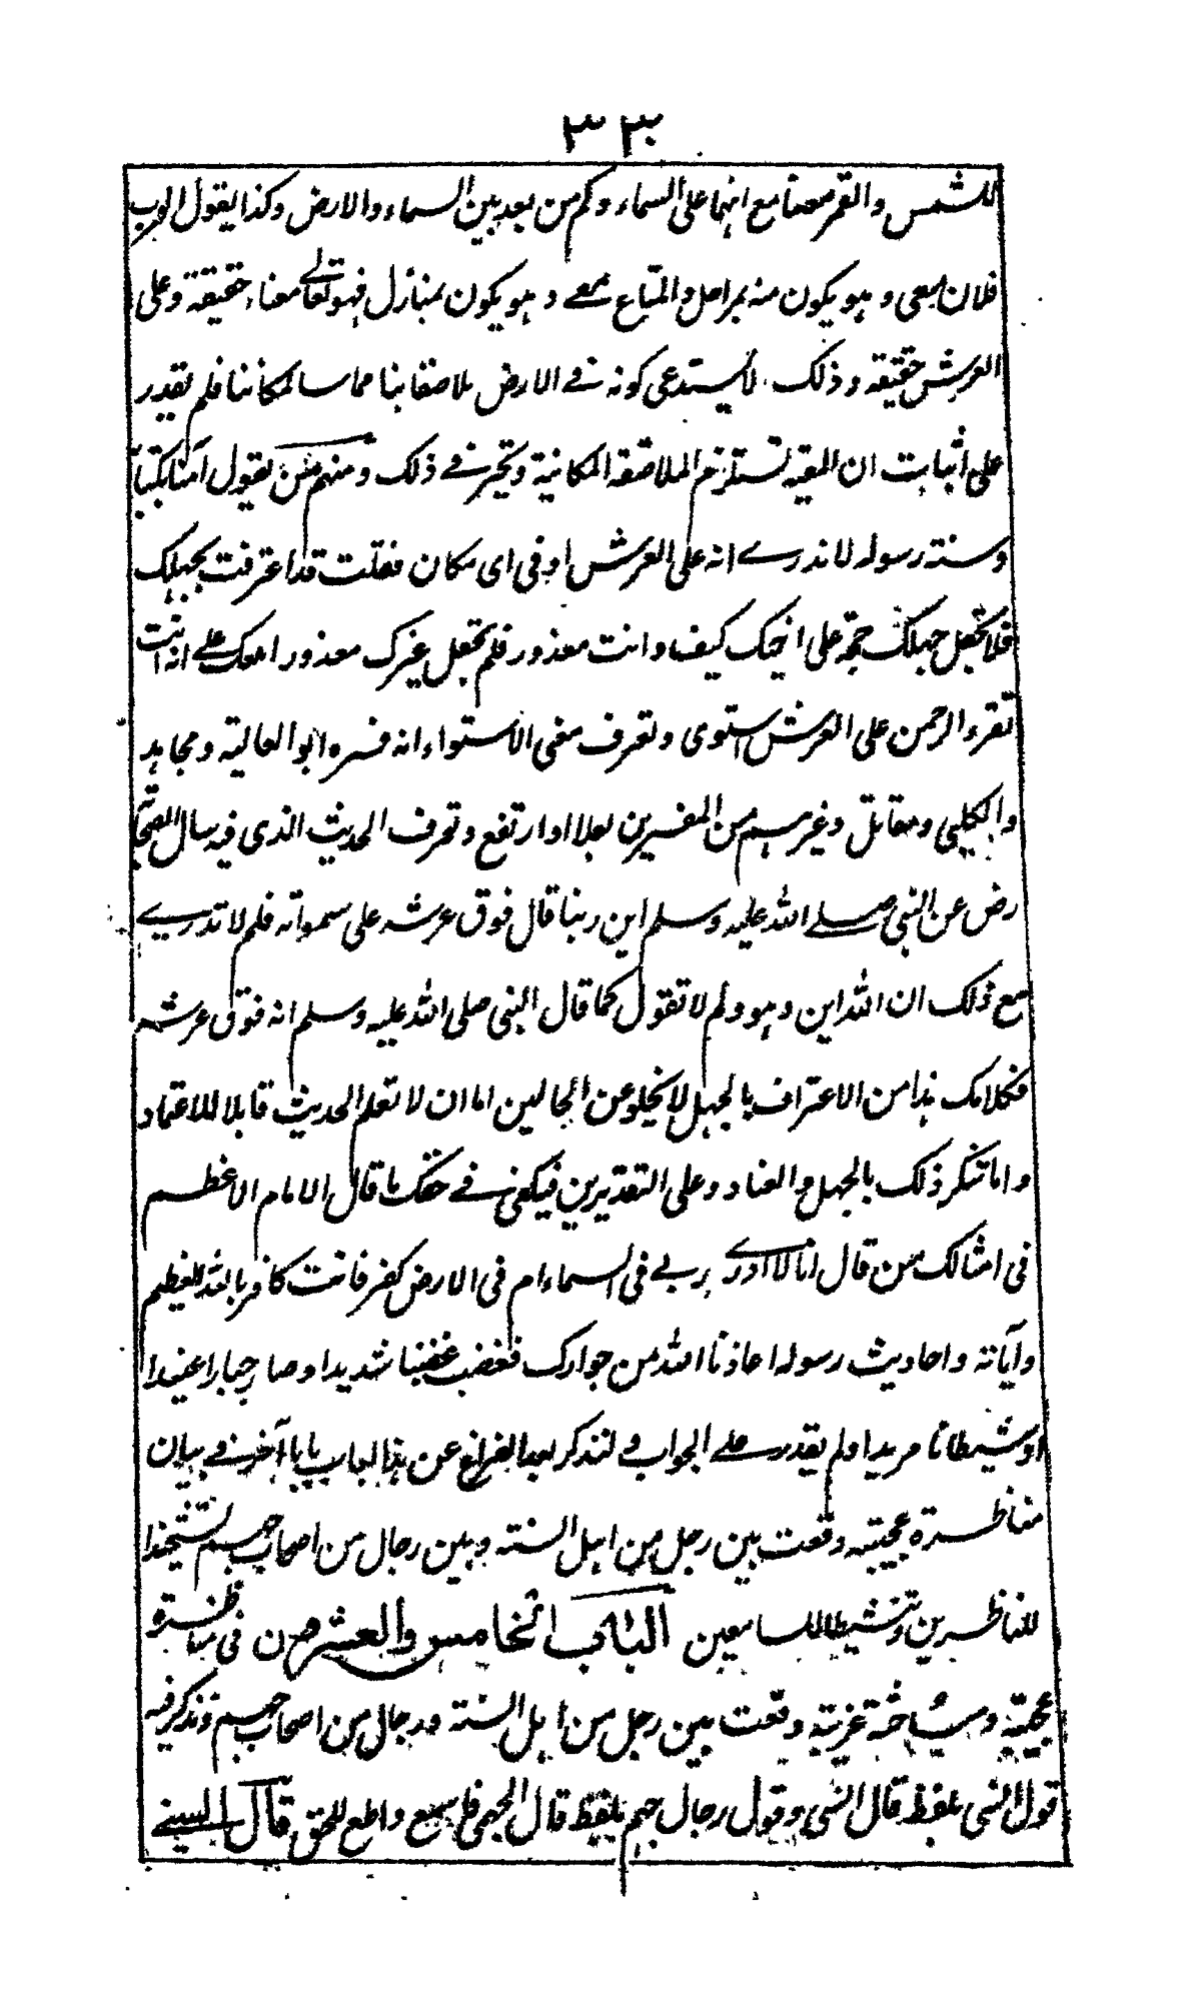 ٣٣
للشمس والقمر معنا مع انهما على السماء وكم من بعد بين السماء والارض وكذا يقول العرب
فلان معى وهو يكون منه بمراحل والمتاع معے وهو يكون بمنازل فهو تعالے معناء حقيقة وعلى
العرش حقيقه وذلك لا يستدعى كونه فے الارض ملاصقا بنا مماسا لمكاننا فلم يقدر
على اثبات ان المعية تستلزم الملاصقة المكانية وتحير فے ذلك ومنهم من يقول آمنا بكتاب
وسنة رسوله لا ندرے انه على العرش او فى اى مكان فقلت قد اعترفت بجهلك
فلا تجعل جهلك حجة على اخيك كيف وانت معذور فلم تجعل غيرك معذورا معك علے انه انت
تقرء الرحمن على العرش استوى وتعرف معنى الاستواء انه فسره ابو العالية ومجاهد
والكلبى ومقاتل وغيرهم من المفسرين بعلا او ارتفع وتعرف الحديث الذى فيه سال الصحابى
رض عن النبى صلے الله عليه وسلم اين ربنا قال فوق عرشه على سمواته فلم لا تدرے
مع ذلك ان الله اين وهو ولم لا تقول كما قال النبى صلى الله عليه وسلم انه فوق عرشه
فكلامك هذا من الاعتراف بالجهل لا يخلو عن الحالين اما ان لا تعلم الحديث قابلا للاعتماد
واما تنكر ذلك بالجهل والعناد وعلى التقديرين فيكفى فے حقك ما قال الامام الاعظم
فى امثالك من قال انا لا ادرے ربے فى السماء ام فى الارض كفر فانت كافر بالله العظيم
وآياته واحاديث رسوله اعاذنا الله من جوارك فغضب غضبا شديدا وصار جبارا عنيدا
او شيطانا مريدا ولم يقدر علے الجواب ولنذكر بعد الفراغ عن هذا الباب بابا آخر فے بيان
مناظرة عجيبة وقعت بين رجل من اهل السنة وبين رجال من اصحاب جهم تشحيذا
للناظرين وتنشيطا للسامعين الباب الخامس والعشرون فى مناظرة
عجيبة ومباحثة غريبة وقعت بين رجل من اهل السنة ورجال من اصحاب جهم ونذكر فيه
قول السنى بلفظ قال السنى وقول رجال جهم بلفظ قال الجهمى فاسمع واطع للحق قال السنے